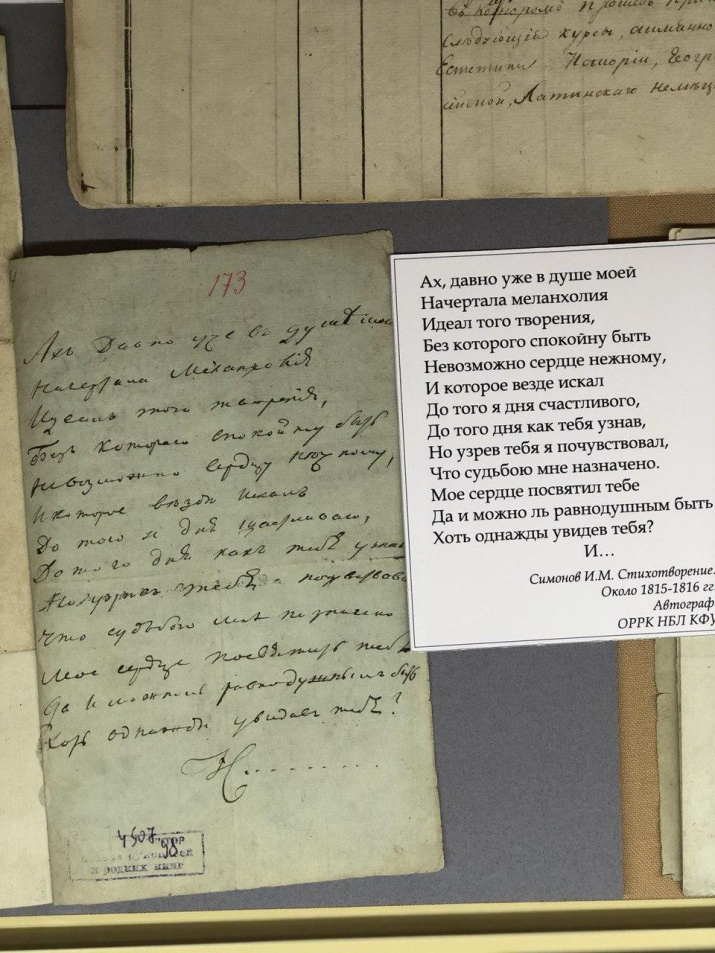 въ которомъ прошелъ при
слѣдующіе курсы, а именно
Естетики Исторіи, Геогр
сійской, Латинскаго Немец
173
Ахъ давно уже въ душѣ моей
Начертала Меланхолія
Идеалъ того творенія,
Безъ котораго спокойну быть
Невозможно сердцу нѣжному,
И которое вездѣ искалъ
До того я дня щастливаго,
До того дня какъ тебя узнавъ
Но узрѣвъ тебя я почувствова
Что судьбою мнѣ назначено
Мое сердце посвятилъ тебѣ
Да и можноль равнодушнымъ быть
Хоть однажды увидевъ тебя?
И........
4507
98
и редких книг
Ах, давно уже в душе моей
Начертала меланхолия
Идеал того творения,
Без которого спокойну быть
Невозможно сердце нежному,
И которое везде искал
До того я дня счастливого,
До того дня как тебя узнав,
Но узрев тебя я почувствовал,
Что судьбою мне назначено.
Мое сердце посвятил тебе
Да и можно ль равнодушным быть
Хоть однажды увидев тебя?
И…
Симонов И.М. Стихотворение.
Около 1815-1816 гг.
Автограф
ОРРК НБЛ КФУ